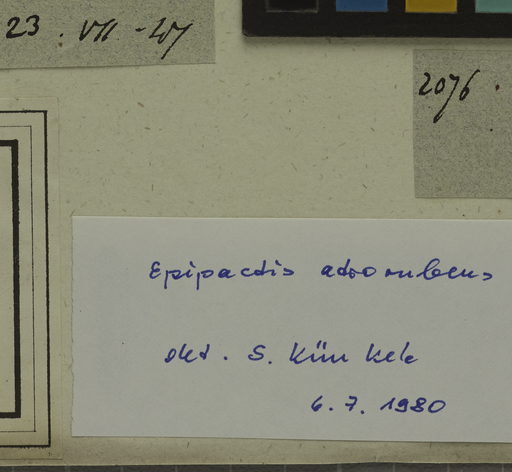 23. VII -
2076.
Epipactis atrorubens
det. S. Künkele
6.7.1980